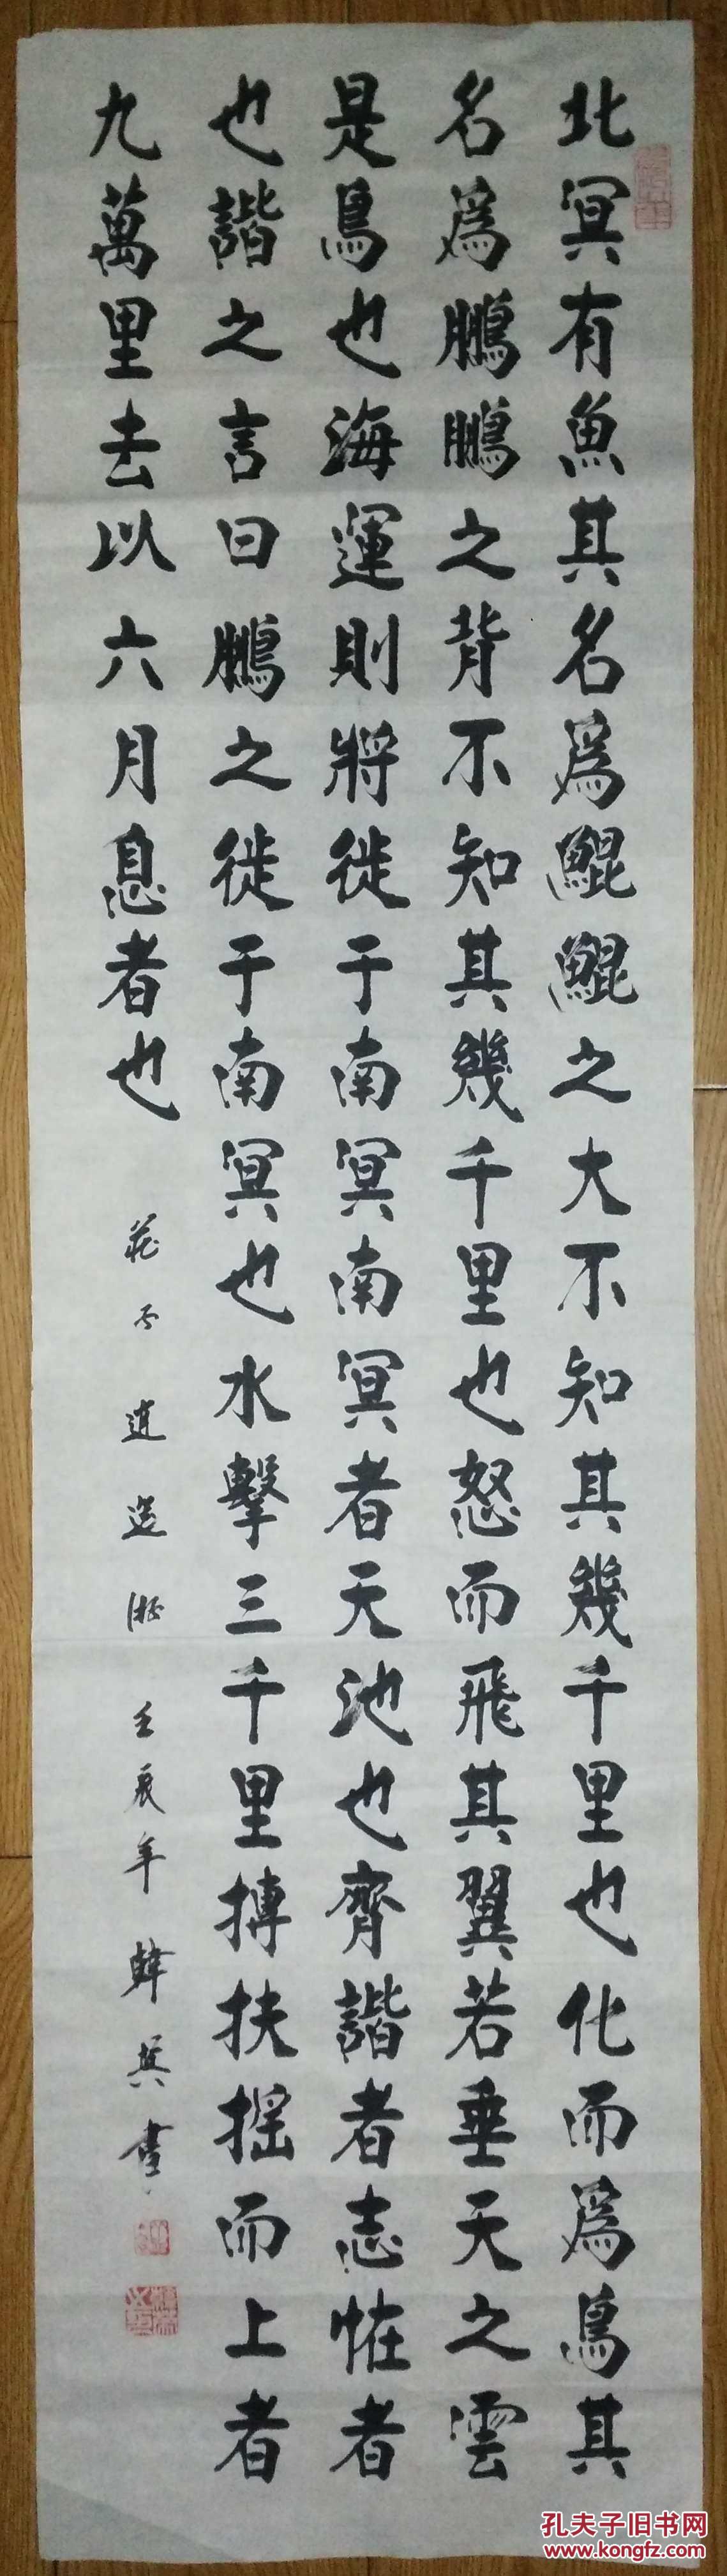 北冥有魚其名爲鯤鯤之大不知其幾千里也化而爲鳥其
名爲鵬鵬之背不知其幾千里也怒而飛其翼若垂天之雲
是鳥也海運則將徙于南冥南冥者天池也齊諧者志恠者
也諧之言曰鵬之徙于南冥也水擊三千里搏扶摇而上者
九萬里去以六月息者也
莊子逍遥游 壬辰年韓英書
孔夫子旧书网
www.kongfz.com